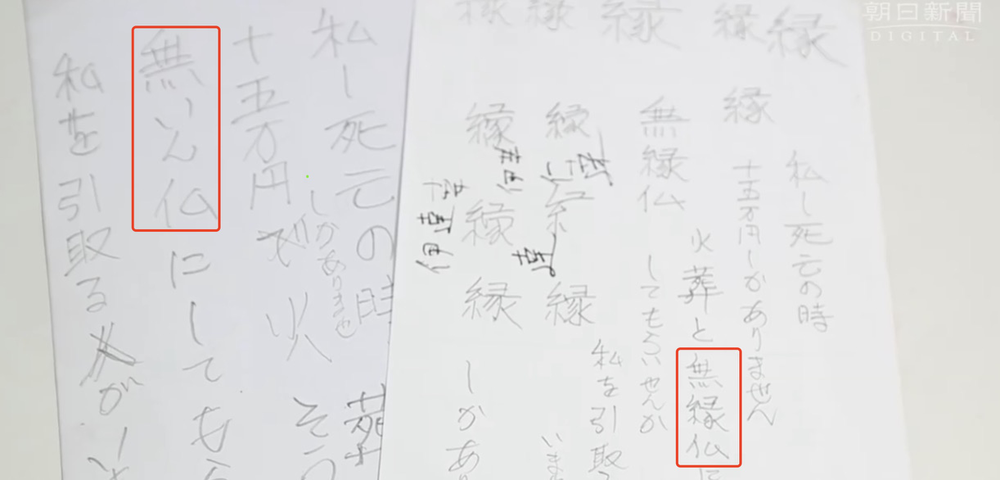 朝日新聞
DIGITAL
縁
縁
縁
縁
縁
私し死亡の時
縁
十五万円しかありません
火葬と無縁仏に
無縁仏
してもらいせんか
私を引取
縁
縁
いま
縁
縁
縁
しかあ
私し死亡の時
葬
しかありませ
十五万円で火そう
無いん仏にしても
私を引取る人がい